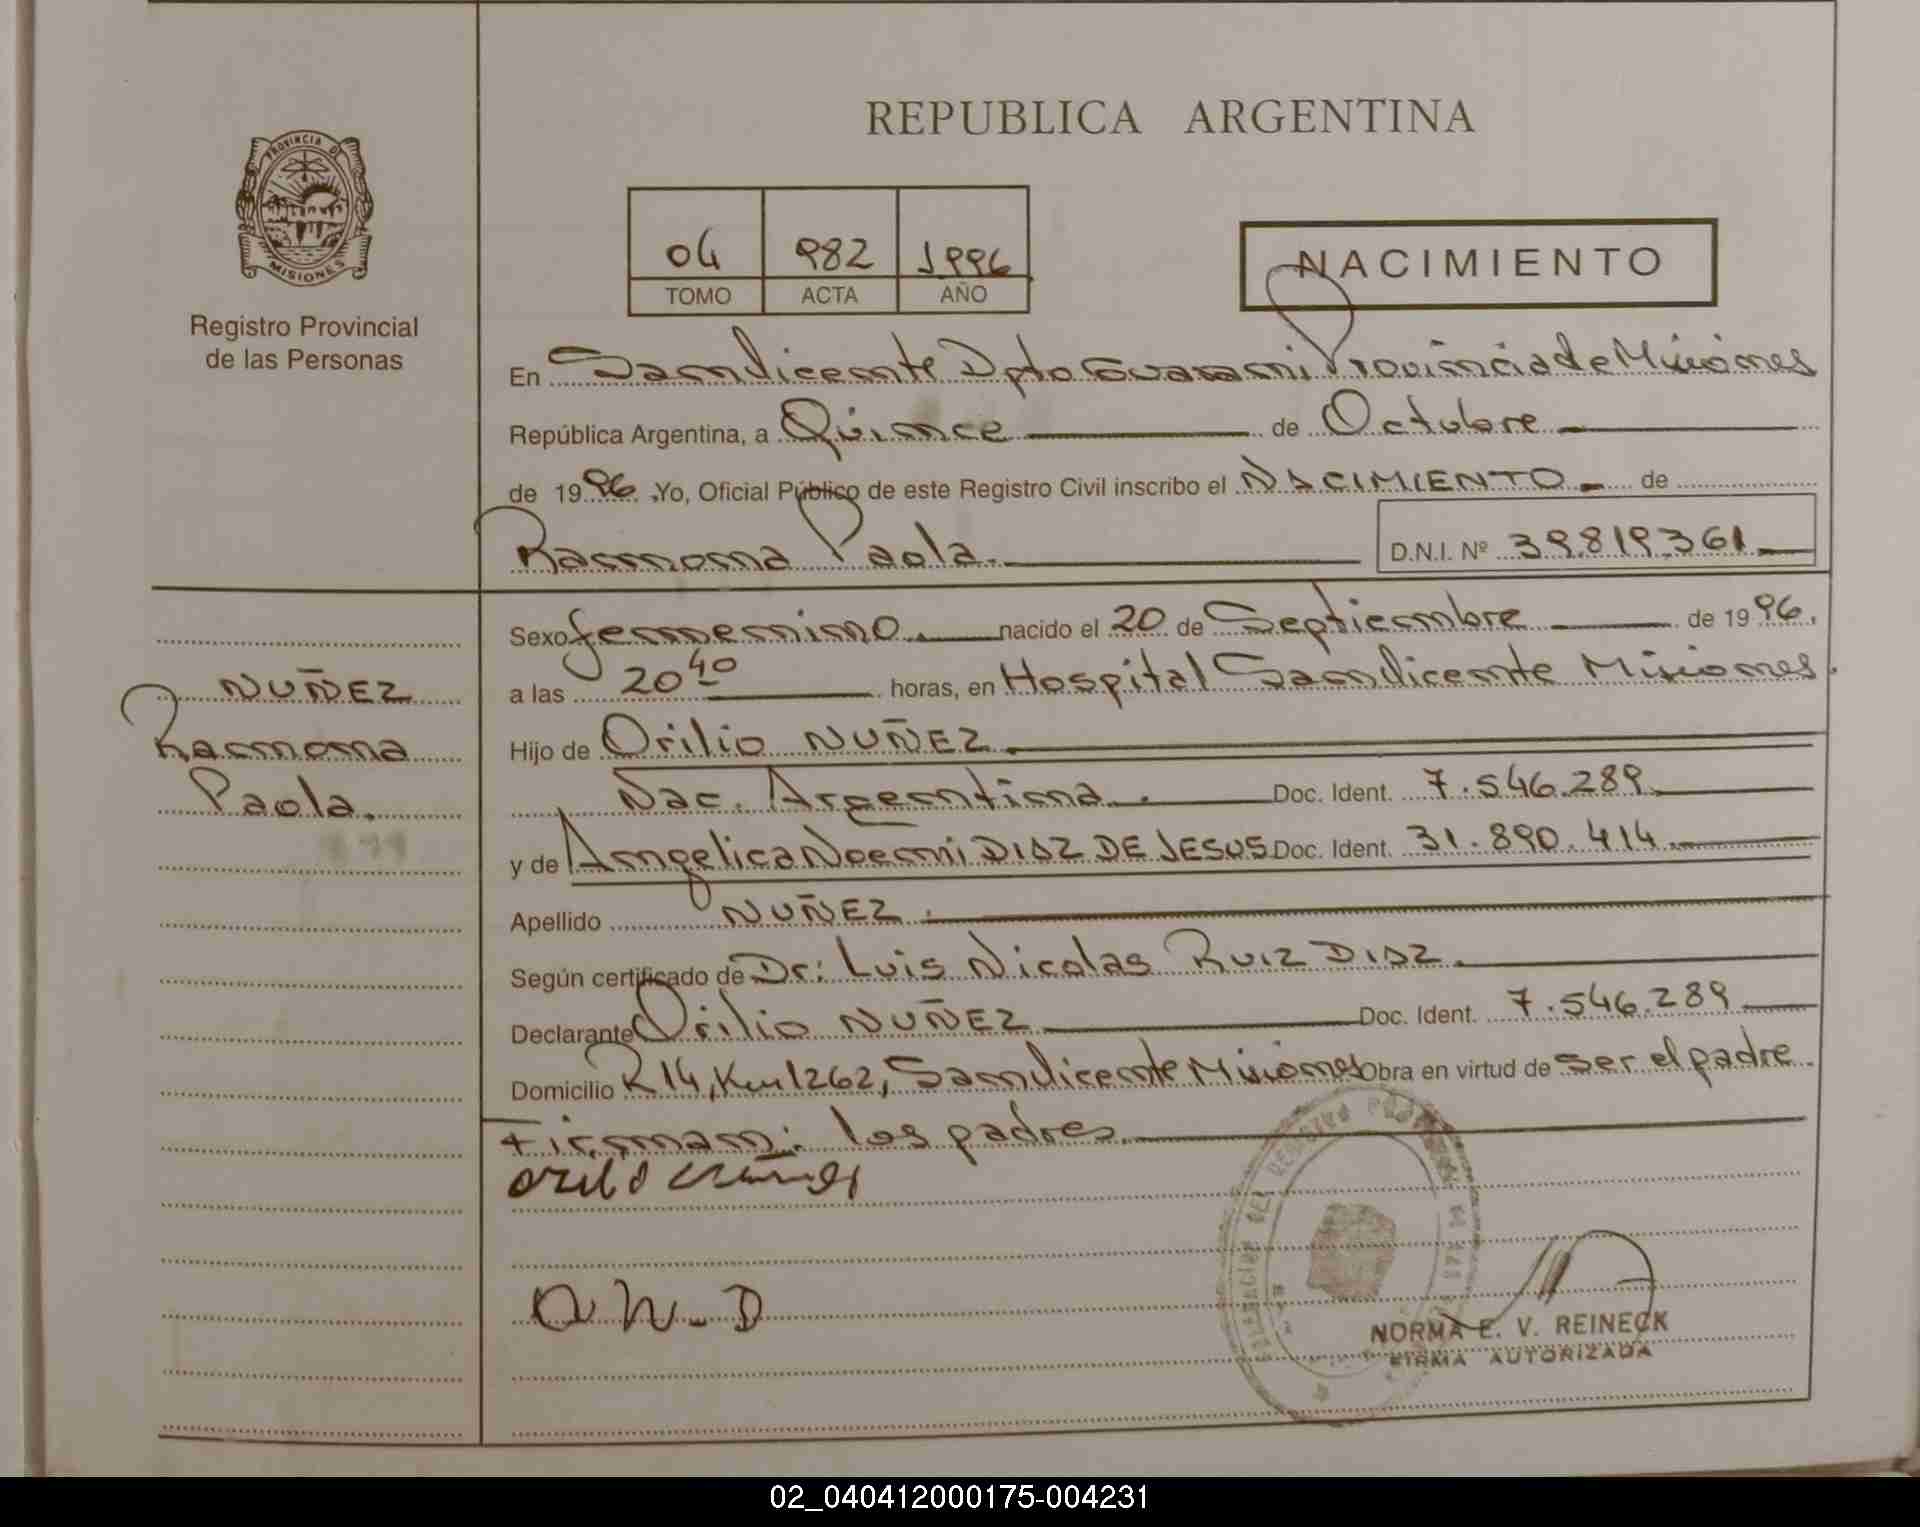 REPUBLICA ARGENTINA
PROVINCIA DE
MISIONES
Registro Provincial
de las Personas
04 982 1996
TOMO ACTA AÑO
NACIMIENTO
En San Vicente Dpto Guarani Provincia de Misiones
República Argentina, a Quince de Octubre
de 1996. Yo, Oficial Público de este Registro Civil inscribo el NACIMIENTO de
Ramona Paola. D.N.I. Nº 39.819.361
Sexo femenino. nacido el 20 de Septiembre de 1996.
a las 20 40 horas, en Hospital San Vicente Misiones.
Hijo de Orilio NUÑEZ.
Nac. Argentina. Doc. Ident. 7.546.289
y de Angelica Noemi DIAZ DE JESUS Doc. Ident. 31.890.414
Apellido NUÑEZ.
Según certificado de Dr: Luis Nicolas RUIZ DIAZ.
Declarante Orilio NUÑEZ Doc. Ident. 7.546.289
Domicilio R 14, Km 1262, San Vicente Misiones Obra en virtud de ser el padre
Firman: los padres.
NUÑEZ
Ramona
Paola.
A N. D
NORMA E. V. REINECK
FIRMA AUTORIZADA
02_040412000175-004231